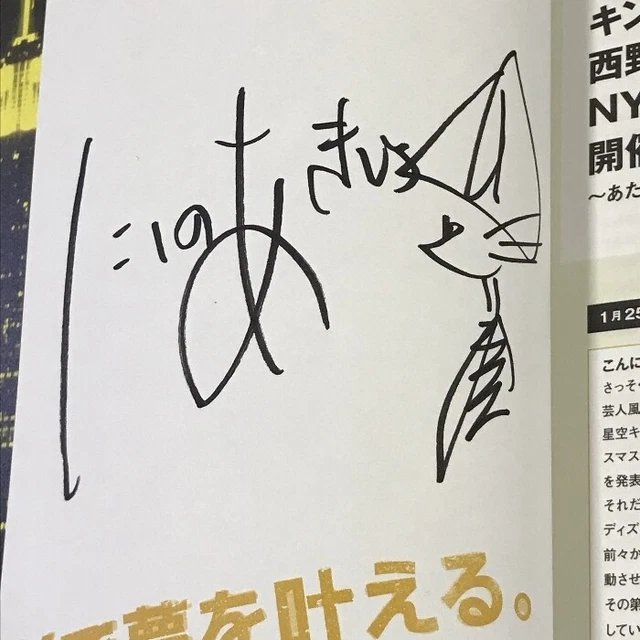 にしのあきひろ
夢を叶える。
キン
西野
NY
開催
～あた
1月25
こんに
さっそく
芸人風
星空キ
スマス
を発表
それだ
ディズ
前々か
動させ
その第
してい